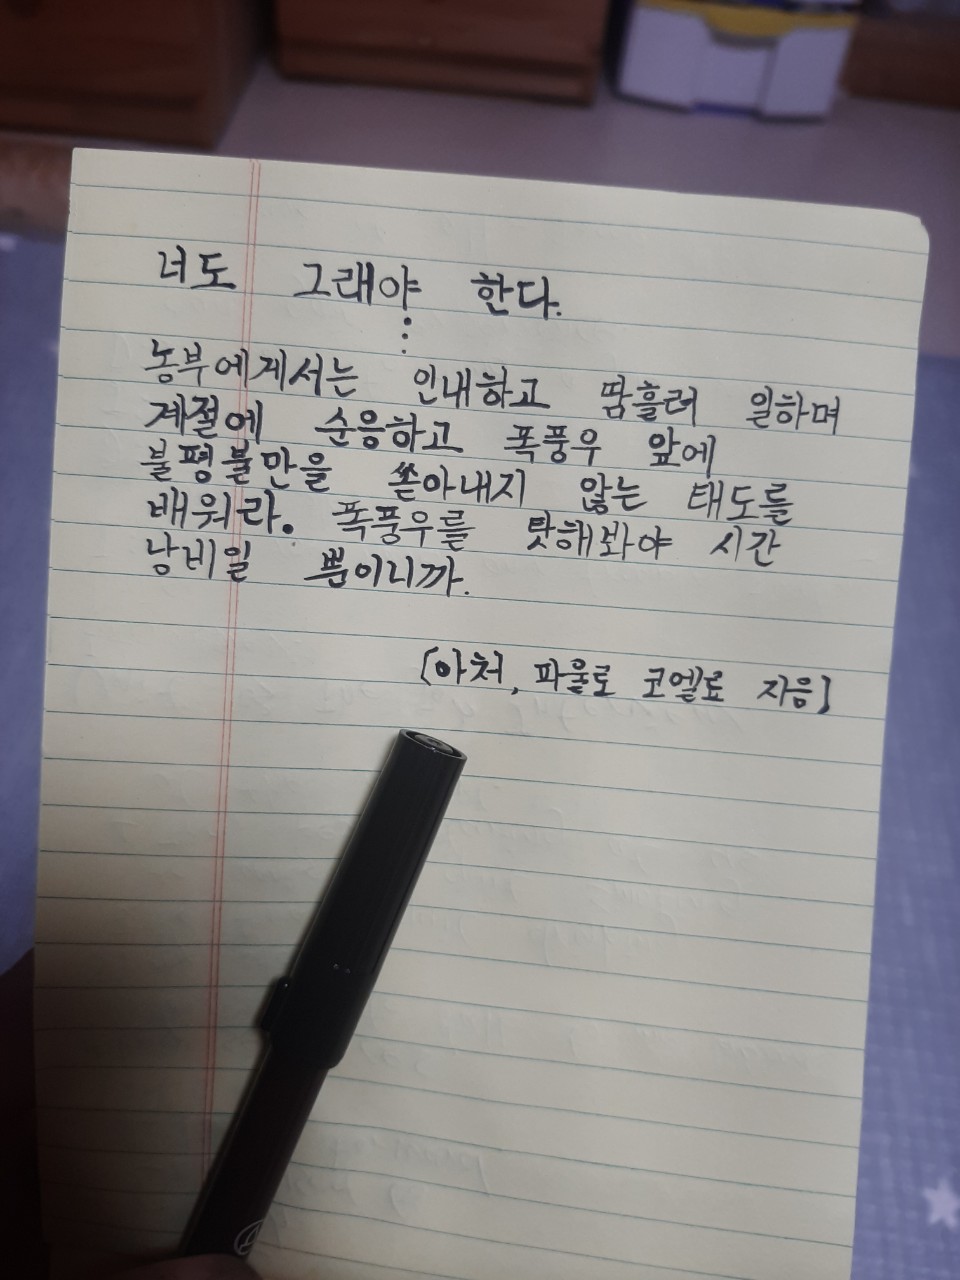 너도 그래야 한다.
⋮
농부에게서는 인내하고 땀흘려 일하며
계절에 순응하고 폭풍우 앞에
불평불만을 쏟아내지 않는 태도를
배워라. 폭풍우를 탓해봐야 시간
낭비일 뿐이니까.
[아처, 파울로 코엘료 지음]